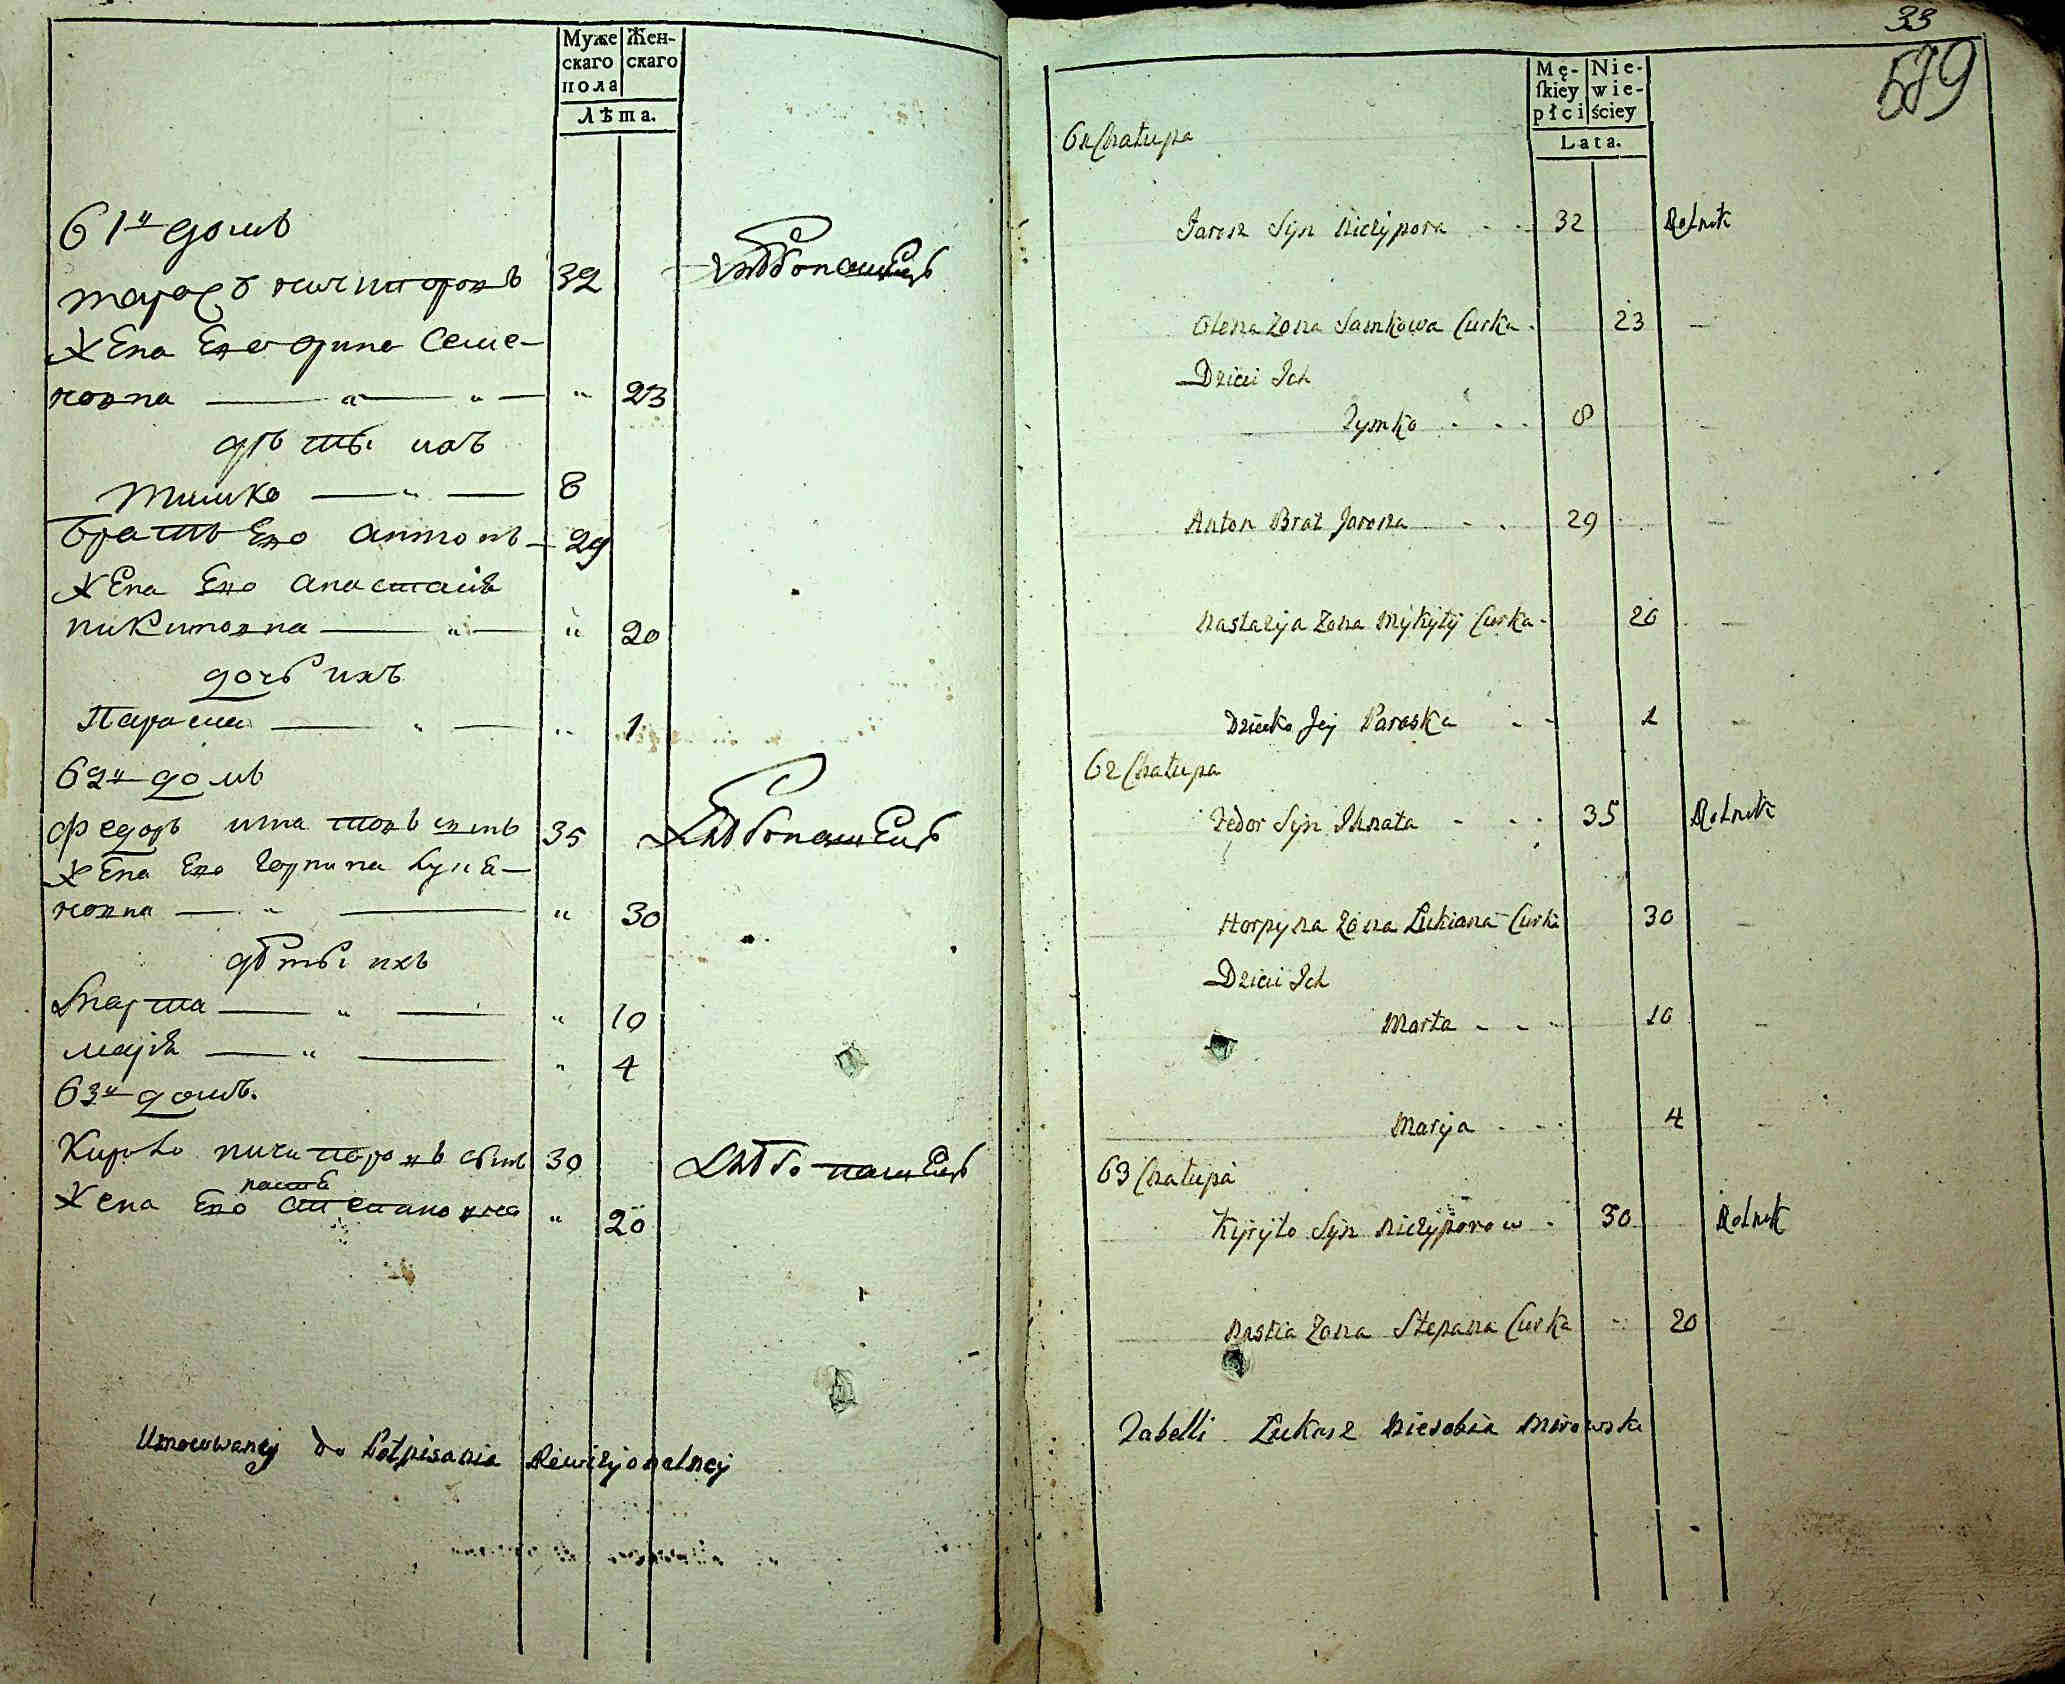 Муже
скаго
пола
Жен-
скаго
Лѣта.
61й домъ
тарасъ ничипоровъ 32 хлѣбопашецъ
жена Его орина Семе-
новна — " — " — " 23
дѣты ихъ
тимко — " — 8
братъ Его антонъ — 29
жена Его анастасія
никитовна — " — " 20
дочь ихъ
Параска — " — " 1
62й домъ
Федоръ игнатовъ сынъ 35 хлѣбопашецъ
жена Его горпина Лукя-
новна — " — " 30
дѣты ихъ
марта — " — " 10
марія — " — " 4
63й домъ.
Кирило ничипоровъ сынъ 30 хлѣбопашецъ
настя
жена Его степановна " 20
Umocowanej do Potpisania Rewizyonalney
33
579
Mę-
skiey
płci
Nie-
wie-
ściey
Lata.
61 Chałupa
Jarosz Syn Niczypora - - 32 Rolnik
Olena Zona Samkowa Curka - 23 —
Dzieci Ich
Tymko - - - 8
Anton Brat Jarosza - - 29 —
Nastazya Zona Mykyty Curka - 20 —
Dziecko Jej Paraska - - 1 —
62 Chałupa
Fedor Syn Ihnata - - - 35 Rolnik
Horpyna Zona Łukiana Curka 30 —
Dzieci Ich
Marta - - - 10 —
Maryja - - - 4 —
63 Chałupa
Kyryło Syn Niczyporow - 30 Rolnik
Nastia Zona Stepana Curka 20 —
Tabelli Łukasz Niesobia Mirowski